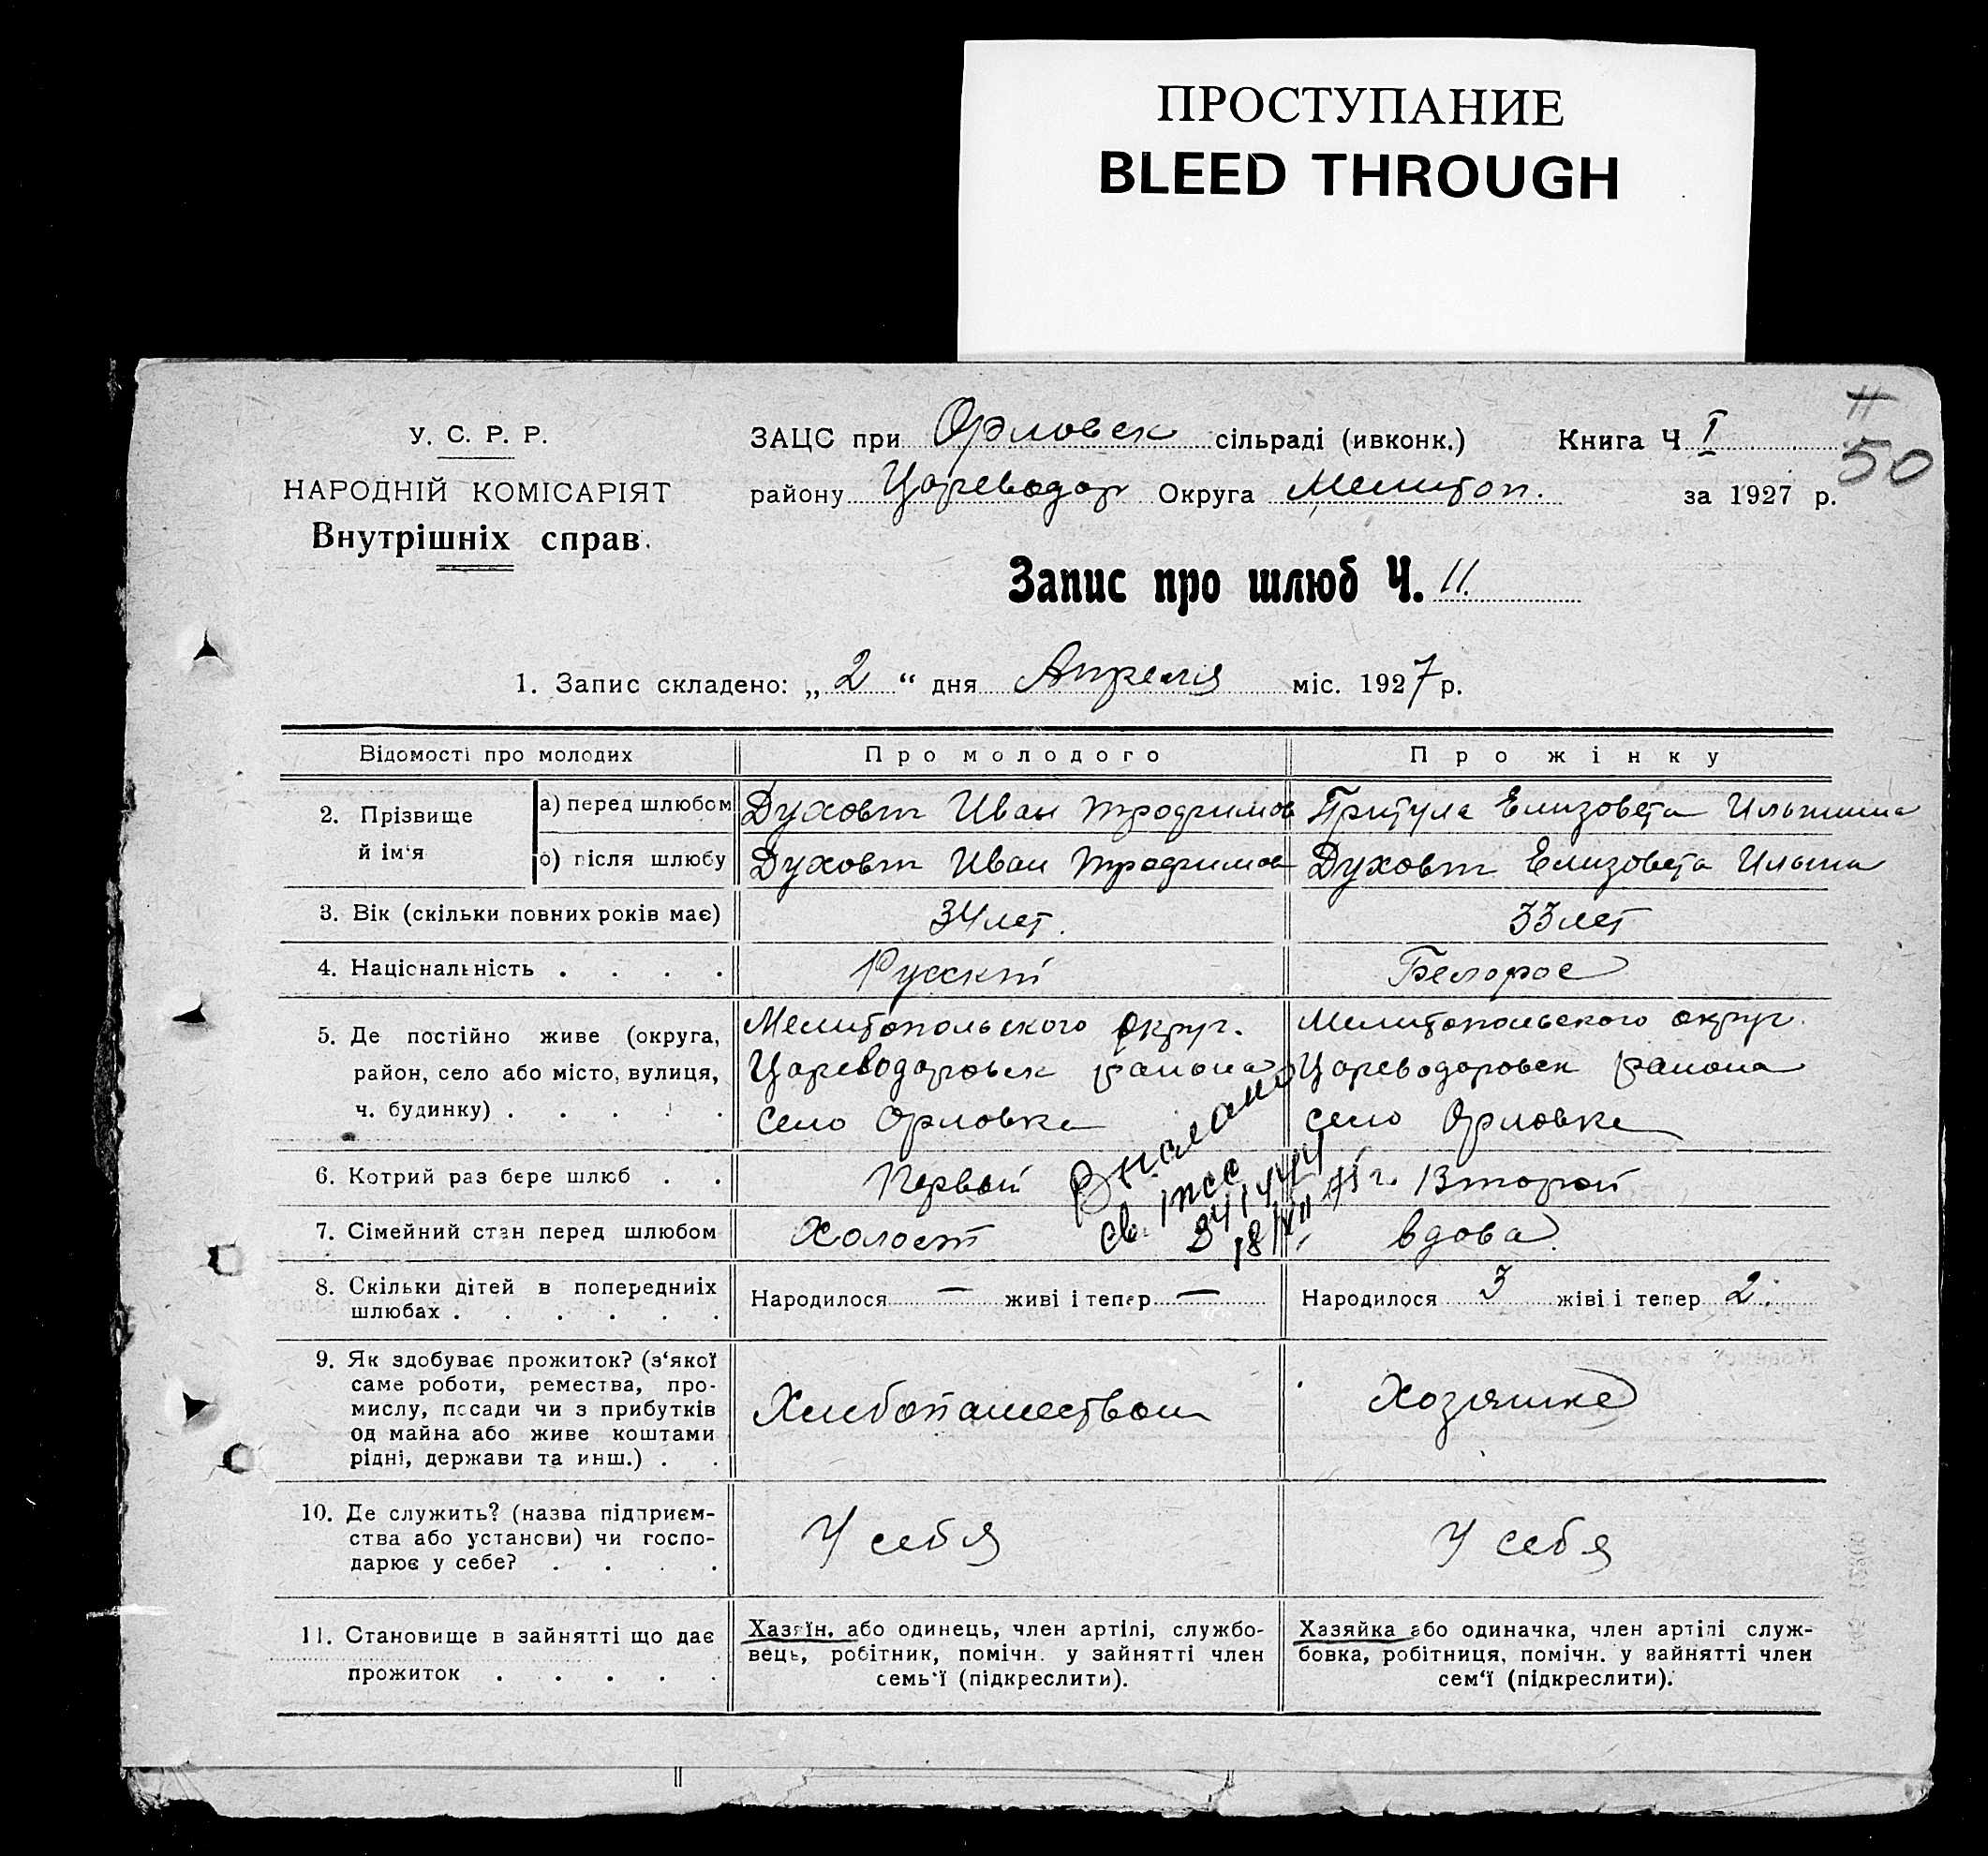 ПРОСТУПАНИЕ
BLEED THROUGH
11
50
У. С. Р. Р.
НАРОДНІЙ КОМІСАРІЯТ
Внутрішніх справ.
ЗАЦС при Орловск сільраді (ивконк.) Книга Ч I
району Цареводар Округа Мелитоп. за 1927 р.
Запис про шлюб Ч. 11.
1. Запис складено: „ 2 “ дня Апреля міс. 1927 р.
Відомості про молодих
Про молодого
Про жінку
2. Прізвище й ім‘я
а) перед шлюбом
Духовт Иван Трофимов
Притула Елизовета Ильинична
б) після шлюбу
Духовт Иван Трофимов
Духовт Елизовета Ильини
3. Вік (скільки повних років має)
34 лет.
33 лет
4. Національність . . . .
Русскій
Белорос
5. Де постійно живе (округа,
район, село або місто, вулиця,
ч. будинку) . . . . .
Мелитопольского округ.
Цареводаровск района
Село Орловка
Мелитопольского округ.
Цареводаровск района
село Орловка
6. Котрий раз бере шлюб . .
Первый
Второй
7. Сімейний стан перед шлюбом
Холост
вдова.
8. Скільки дітей в попередниіх
шлюбах . . . . . .
Народилося — живі і тепер —
Народилося 3 жіві і тепер 2.
9. Як здобуває прожиток? (з‘якої
саме роботи, ремества, про-
мислу, посади чи з прибутків
од майна або живе коштами
рідні, держави та инш.) . .
Хлебопашеством
Хозяйка
10. Де служить? (назва підприєм-
ства або установи) чи госпо-
дарює у себе? . . . .
У себя
У себя
11. Становище в зайнятті що дає
прожиток . . . . .
Хазяїн, або одинець, член артілі, службо-
вець, робітник, помічн. у зайнятті член
семь‘ї (підкреслити).
Хазяйка або одиначка, член артілі служ-
бовка, робітниця, помічн. у зайнятті член
сем‘ї (підкреслити).